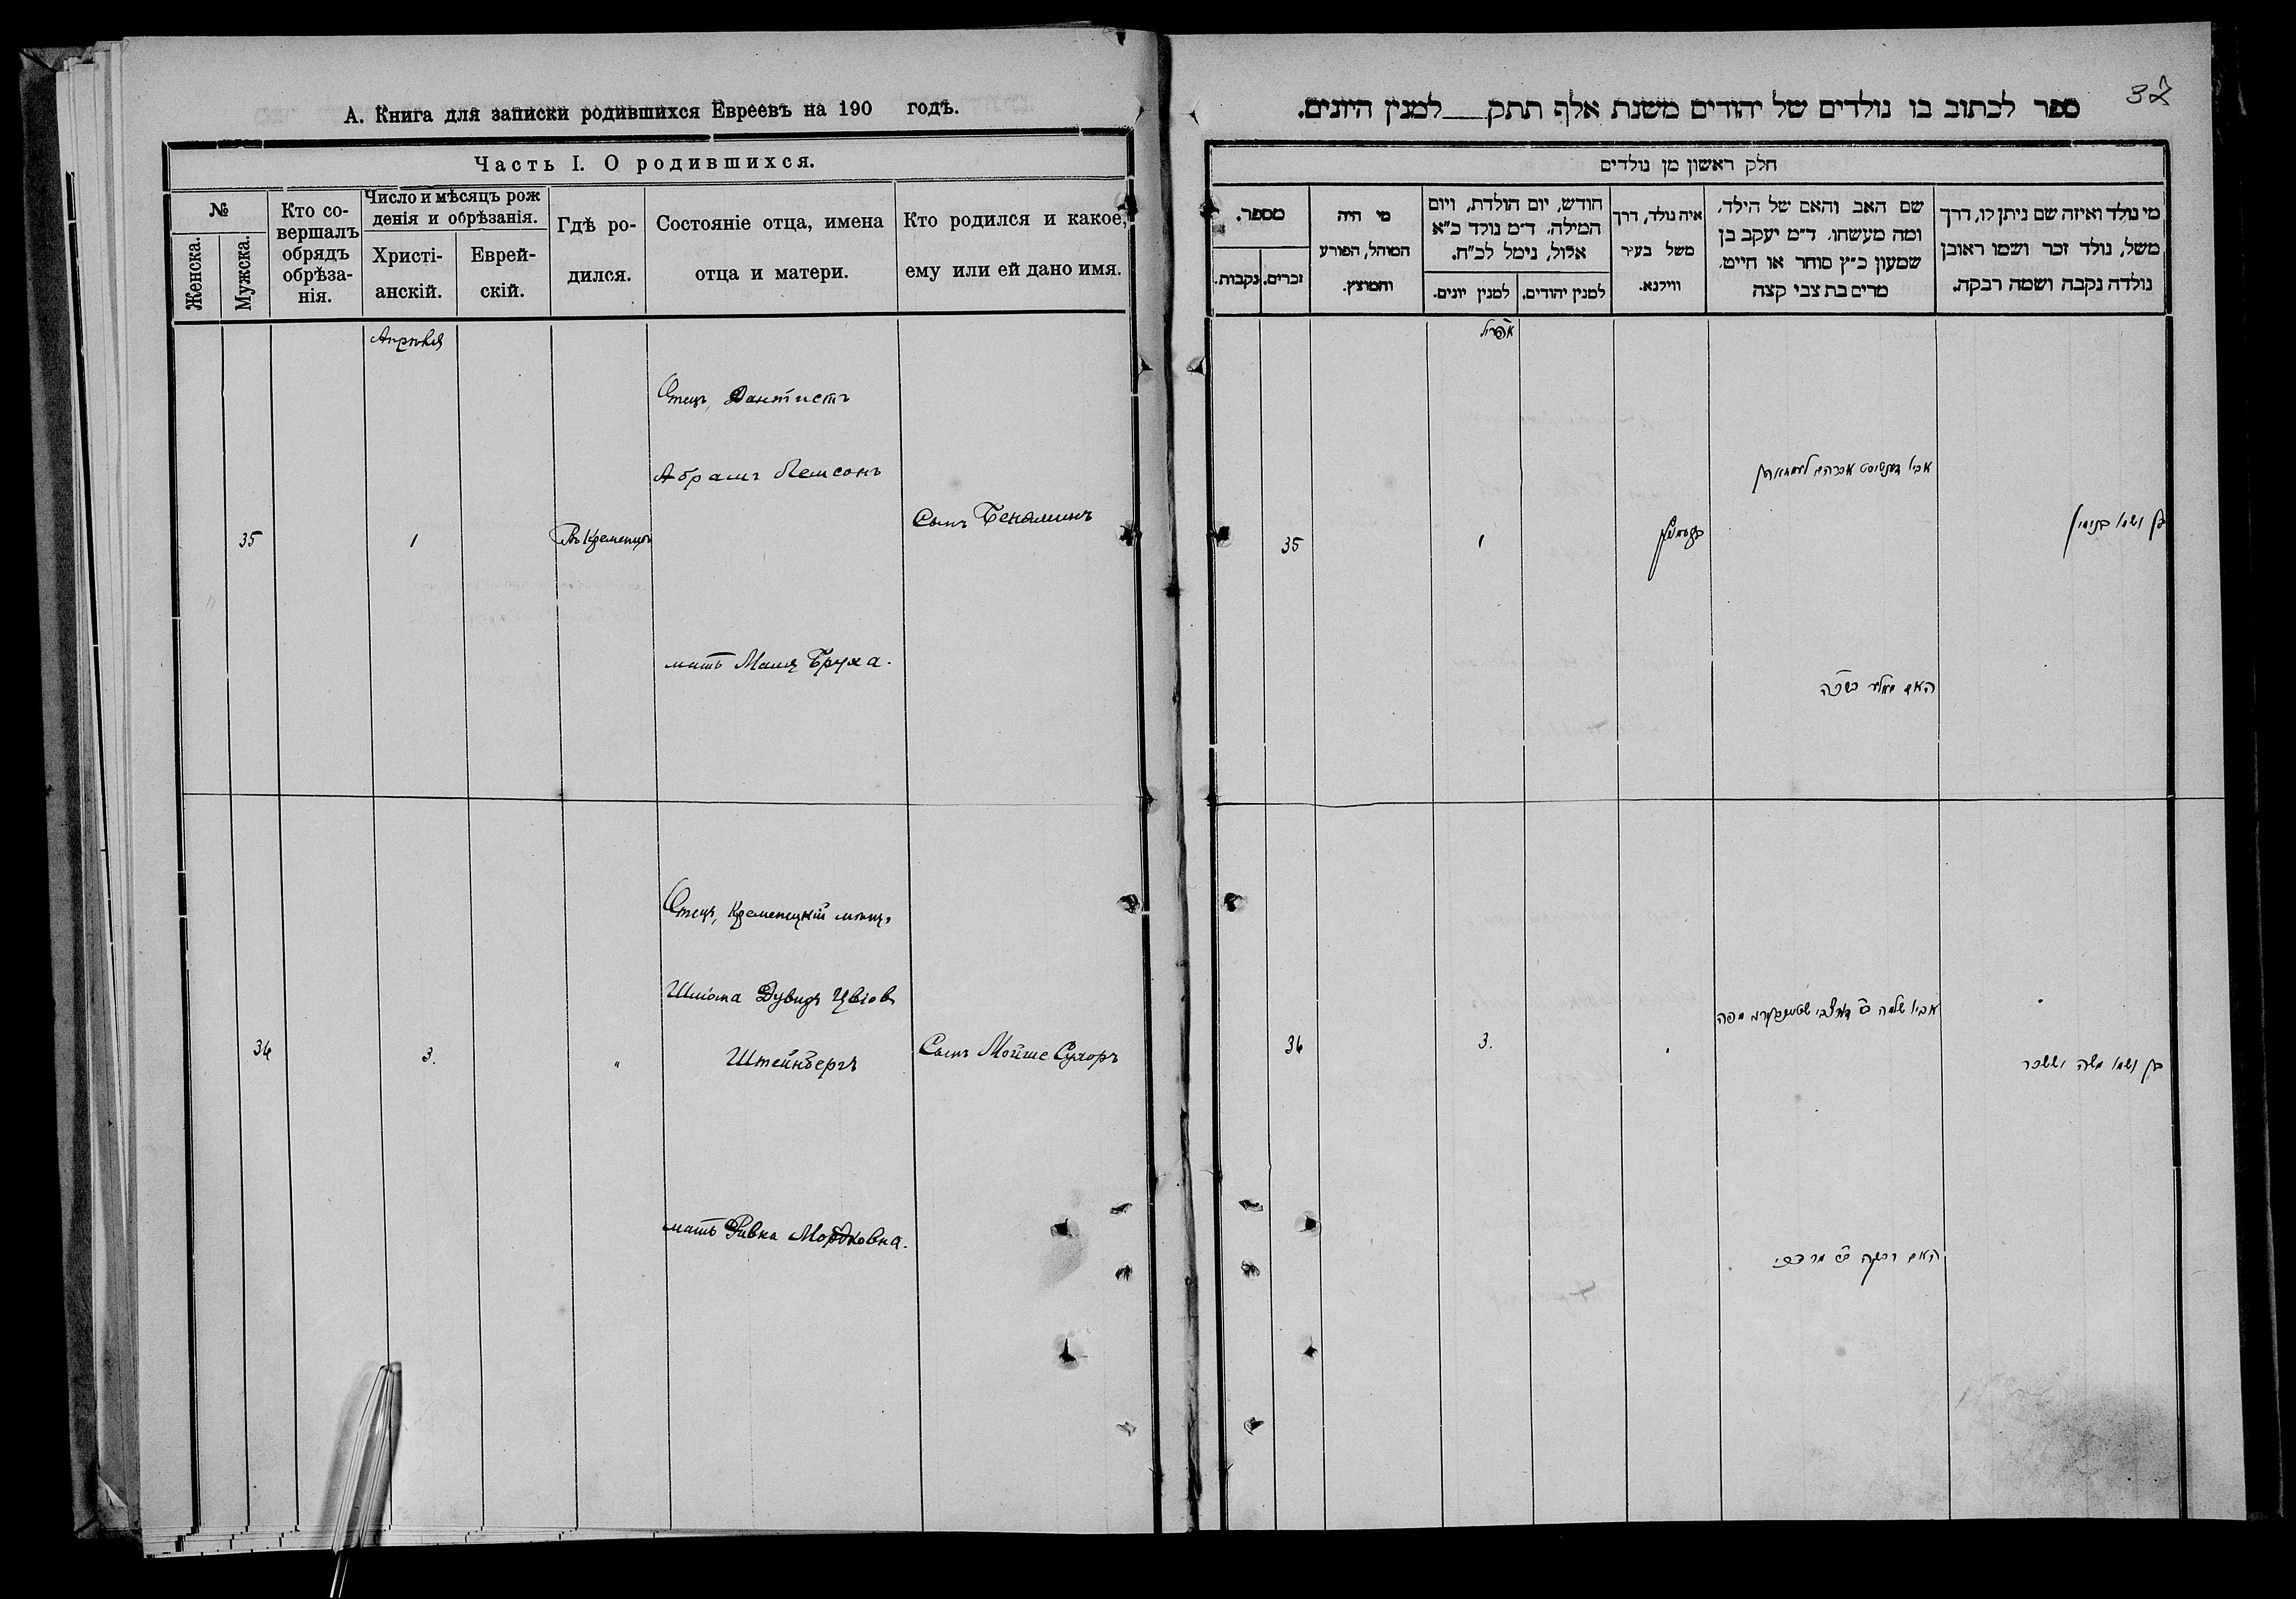 А. Книга для записки родившихся Евреевъ на 190 годъ.
Часть I. О родившихся.
№
Женска.
Мужска.
Кто со-
вершалъ
обрядъ
обрѣза-
нія.
Число и мѣсяцъ рож
денія и обрѣзанія.
Христі-
анскій.
Еврей-
скій.
Гдѣ ро-
дился.
Состояніе отца, имена
отца и матери.
Кто родился и какое,
ему или ей дано имя.
Апрѣля
Отецъ, Дантистъ
Абрамъ Лемсонъ
35
1
Въ Кременцѣ
Сынъ Беніаминъ
мать Маля Бруха.
Отецъ, Кременецкій мѣщ.
Шліома Дувидъ Цвіов
Штейнбергъ
36
3.
"
Сынъ Мойше Сухоръ
мать Ривка Мордковна.
37
ספר לכתוב בו נולדים של יהודים משנת אלף תתק למנין היונים.
חלק ראשון מן נולדים
מי נולד ואיזה שם ניתן לו, דרך
משל, נולד זכר ושמו ראובן
נולדה נקבה ושמה רבקה.
שם האב והאם של הילד,
ומה מעשהו. ד"מ יעקב בן
שמעון כ"ץ סוחר או חייט,
מרים בת צבי קצה
איה נולד, דרך
משל בעיר
ווילנא.
חודש, יום הולדת, ויום
המילה. ד"מ נולד כ"א
אלול, נימל לכ"ח.
למנין יהודים.
למנין יונים.
מי היה
המוהל, הפורע
והמוצץ.
מספר.
זכרים.
נקבות.
אפריל
אביו דענטיסט אברהם
בן ושמו בנימין
1
35
האם מאליע
אביו שלמה דוד צבי שטיינבערג מפה
בן ושמו משה יששכר
3.
36
האם רבקה בת מרדכי